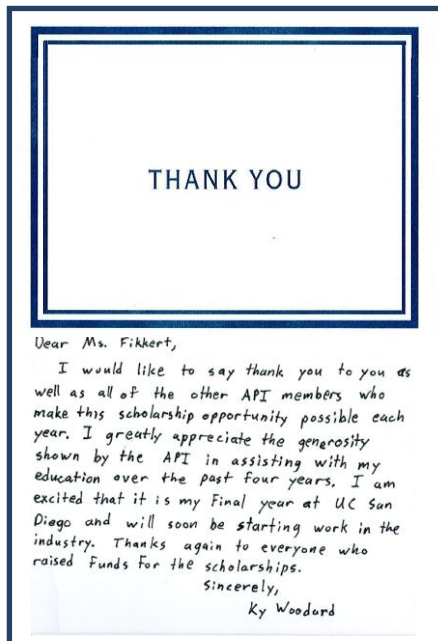 THANK YOU
Dear Ms. Fikkert,
I would like to say thank you to you as
well as all of the other API members who
make this scholarship opportunity possible each
year. I greatly appreciate the generosity
shown by the API in assisting with my
education over the past four years. I am
excited that it is my final year at UC San
Diego and will soon be starting work in the
industry. Thanks again to everyone who
raised funds for the scholarships.
Sincerely,
Ky Woodard